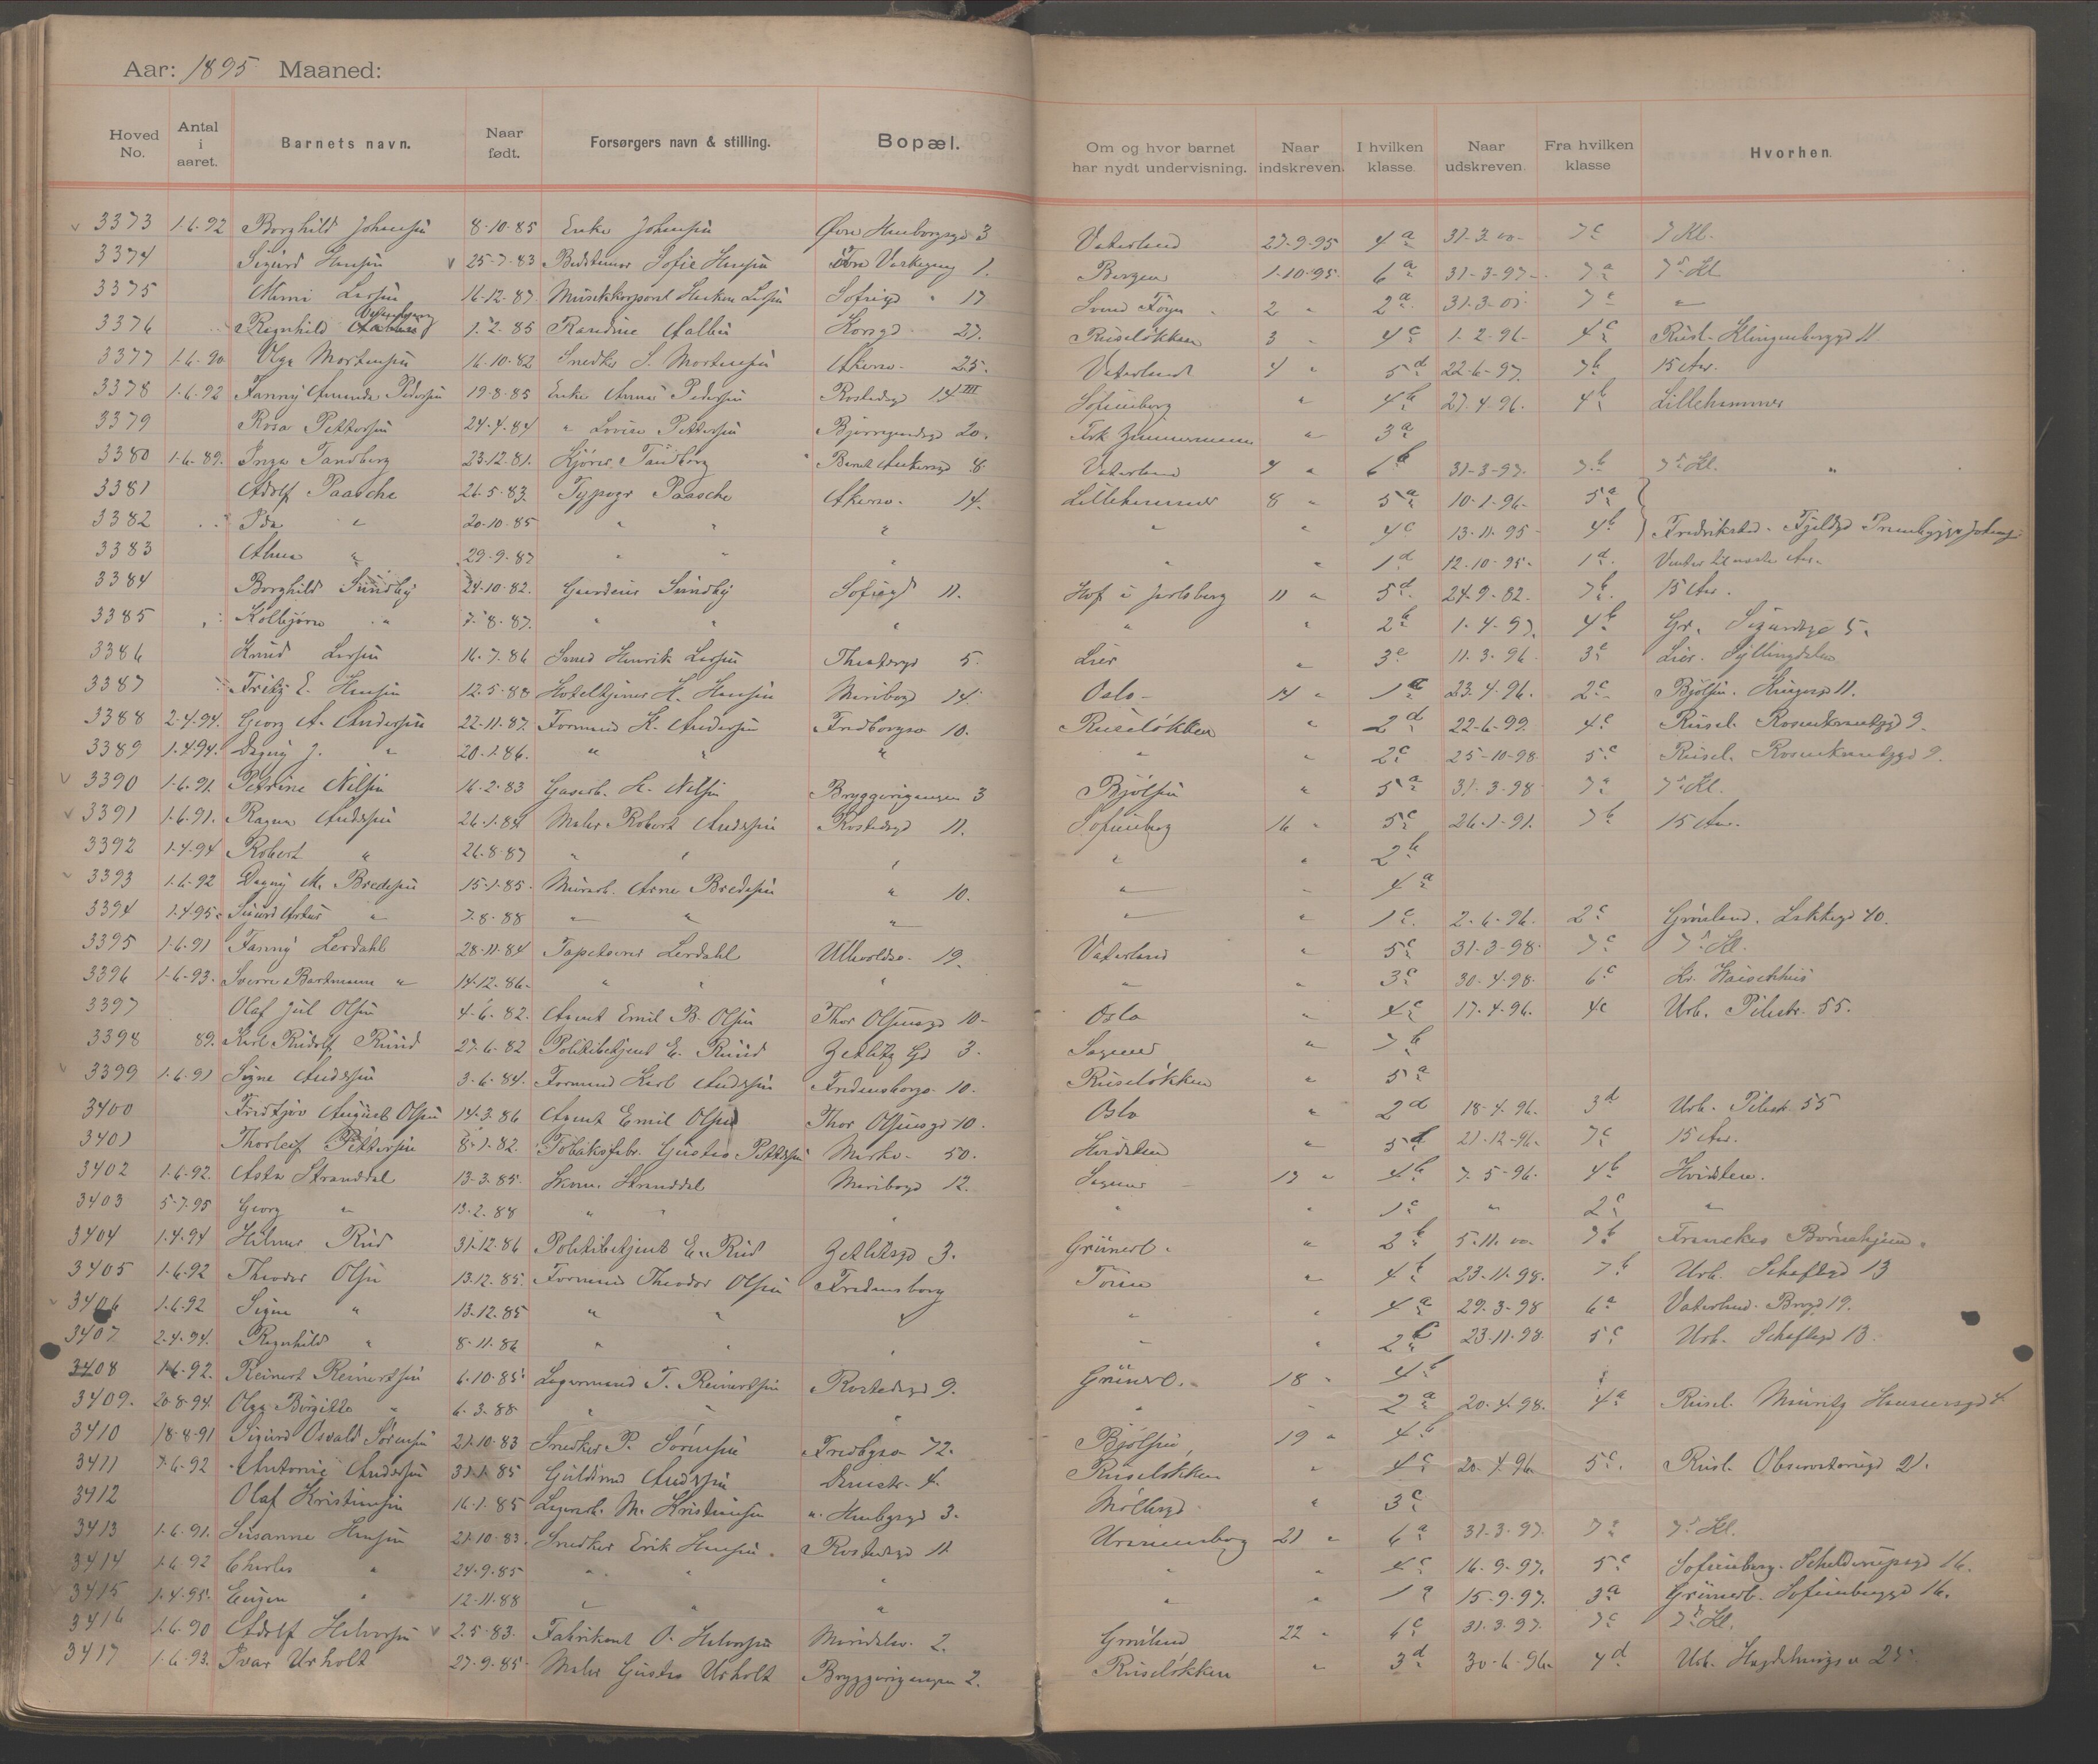 Aar: 1895 Maaned:
Hoved No. Antal i aaret. Barnets navn. Naar født. Forsørgers navn & stilling. Bopæl. Om og hvor barnet har nydt undervisning. Naar indskreven. I hvilken klasse. Naar udskreven. Fra hvilken klasse Hvorhen.
3373 1.6.92 Borghild Johansen 8.10.85 Enke Johansen 3 Vaterland 27.9.95 4a 31.3.00 7c 7 Kl.
3374 Sigurd Hansen 25.7.83 Bedstemor Sofie Hansen 1. Bergen 1.10.95 6a 31.3.97 7a 7de Kl
3375 Larsen 16.12.87 Musikkorporal Haakon Larsen Sofiegd 17 Svend Foyn 2 " 2a 31.3.01 7c "
3376 Ragnhild 1.2.85 Randine Korsgd. 27. Ruseløkken 3 " 4c 1.2.96 4c Rusel. Klingenberggd 11
3377 1.6.90 Olga Mortensen 16.10.82 Snedker S. Mortensen Akersv. 25. Vaterland 4 " 5d 22.6.97 7b 15 Aar.
3378 1.6.92 Fanny Amanda Pedersen 19.8.85 Enke Anna Pedersen Rostedsgd 14 III Sofienberg " 4b 27.4.96. 4b Lillehammer
3379 Rosa Pettersen 24.4.84 " Lovise Pettersen 20. Frk. Zimmermann " 3a
3380 1.6.89. Inga Tandberg 23.12.81. Kjører Tandberg Bernt Ankersgd 8. Vaterland 7 " 6b 31.3.97. 7b 7de Kl. "
3381 Adolf Paasche 26.5.83. Typogr Paasche Akersv. 14. Lillehammer 8 " 5a 10.1.96. 5a
3382 Ida " 20.10.85 " " " " " 4c 13.11.95 4b Fredrikstad.
3383 " 29.9.87 " " " " " 1d 12.10.95. 1d. Venter til næste Aar.
3384 Borghild Sundby 24.10.82. Sundby Sofiegd 11. Hof i Jarlsberg 11 " 5d. 24.9.82. 7b. 15 Aar.
3385 Kolbjørn " 7.8.87. " " " " " 2b 1.4.97. 4b Gr. Sigurdsgd 5.
3386 Knud Larsen 16.7.86 Smed Henrik Larsen Theatergd 5. Lier " 3c 11.3.96 3c Lier. Syllingdalen
3387 Fritz E. Hansen 12.5.88 Hoteltjener H. Hansen Maribogd 14. Oslo 14 " 1c 23.4.96. 2c Bjølsen. 11.
3388 2.4.94. Georg A. Andersen 22.11.87. Formand K. Andersen Fredborgsv 10. Ruseløkken " 2d 22.6.99. 4c Rusel. Rosenkrantzgd 9.
3389 1.4.94. Dagny J. " 20.1.86. " " " " " 2c 25.10.98 5c Rusel. Rosenkrantzgd 9.
3390 1.6.91. Petrine Nilsen 16.2.83 Gasarb. H. Nilsen Bryggerigangen 3 Bjølsen " 5a 31.3.98 7a 7de Kl.
3391 1.6.91. Ragna Andersen 26.1.84 Maler Robert Andersen Rostedsgd 11. Sofienberg 16 " 5c 26.1.91. 7b 15 Aar.
3392 1.4.94 Robert " 26.8.87 " " " " " 2b
3393 1.6.92 Dagny M. Bredesen 15.1.85. Murarb. Arne Bredesen " 10. " " 4a
3394 1.4.95. Sigurd Artur " 7.8.88 " " " " " 1c. 2.6.96. 2c Grønland. Lakkegd 40.
3395 1.6.91 Fanny Lerdahl 28.11.84 Tapetserer Lerdahl Ullevoldsv. 19. Vaterland " 5c 31.3.98. 7c 7de Kl.
3396 1.6.93. Sverre Bartmann " 14.12.86. " " " " " 3c 30.4.98. 6c Kr. Waisenhus
3397 Olaf Jul Olsen 4.6.82. Agent Emil B. Olsen Thor Olsensgd 10. Oslo " 4c 17.4.96. 4c Urb. Pilestr. 55.
3398 89. Karl Rudolf Ruud 27.6.82 Politibetjent E. Ruud Zetlitz Gd 3. Sagene " 7b
3399 1.6.91 Signe Andersen 3.6.84. Formand Karl Andersen Fredensborgv. 10. Ruseløkken " 5a
3400 Fridtjov August Olsen 14.3.86 Agent Emil Olsen Thor Olsensgd 10. Oslo " 2d 18.4.96. 3d Urb. Pilestr. 55
3401 Thorleif Pettersen 8.1.82. Tobaksfabr. Gustav Pettersen Markv. 50. Hvidsten " 5d 21.12.96. 7c 15 Aar.
3402 1.6.92. Asta Stranddal 13.3.85. Skom. Stranddal Maribogd 12. Sagene 17 " 4b 7.5.96. 4b Hvidsten.
3403 5.7.95 Georg " 13.2.88 " " " " " 1c " 2c "
3404 1.4.94 Hilmar Rud 31.12.86 Politibetjent E. Rud Zetlitzgd 3. Grünerl. " 2b 5.11.00. 7b Franckes Børnehjem.
3405 1.6.92 Theodor Olsen 13.12.85. Formand Theodor Olsen Fredensborg Tøien " 4b 23.11.98. 7b Urb. Schaftegd 13
3406 1.6.92 Signe " 13.12.85 " " " " " 4a 29.3.98 6a Vaterland. Brogd 19.
3407 2.4.94. Ragnhild " 8.11.86 " " " " " 2c 23.11.98. 5c Urb. Schaftegd 13.
3408 1.6.92. Reinert Reinertsen 6.10.85 Lagermand T. Reinertsen Rostedsgd 9. Grünerl. 18 " 4b
3409. 20.8.94. Olga Birgitte " 6.3.88 " " " " " 2a 20.4.98. 4a Rusel. Mauritz Hansensgd 4
3410 18.8.91 Sigurd Osvald Sørensen 21.10.83 Snedker P. Sørensen Fredbgsv 72. Bjølsen, 19 " 4b
3411 7.6.92 Antonie Andersen 31.1.85 Guldsmed Andersen 4. Ruseløkken " 4c 20.4.96. 5c. Rusl. Observatoriegd 21.
3412 Olaf Kristiansen 16.1.85 Lagerarb. M. Kristiansen 3. Møllergd. " 3c
3413 1.6.91. Susanne Hansen 21.10.83. Snedker Erik Hansen. Rostedsgd 11 Uranienborg 21 " 6a 31.3.97. 7a 7de Kl.
3414 1.6.92 Charles " 24.9.85 " " " " " 4c 16.9.97. 5c Sofienberg. Schleldrupsgd 16.
3415 1.4.95. Eugen " 12.11.88 " " " " " 1a 15.9.97. 3a Grünerl. Sofienberggd 16.
3416 1.6.90 Adolf Halvorsen 2.5.83. Fabrikant O. Halvorsen Maridalsv. 2. Grønland 22 " 6c 31.3.97. 7c 7de Kl.
3417 1.6.93. Ivar Urholt 27.9.85 Maler Gustav Urholt Bryggerigangen 2. Ruseløkken " 3d 30.6.96. 4d Urb.